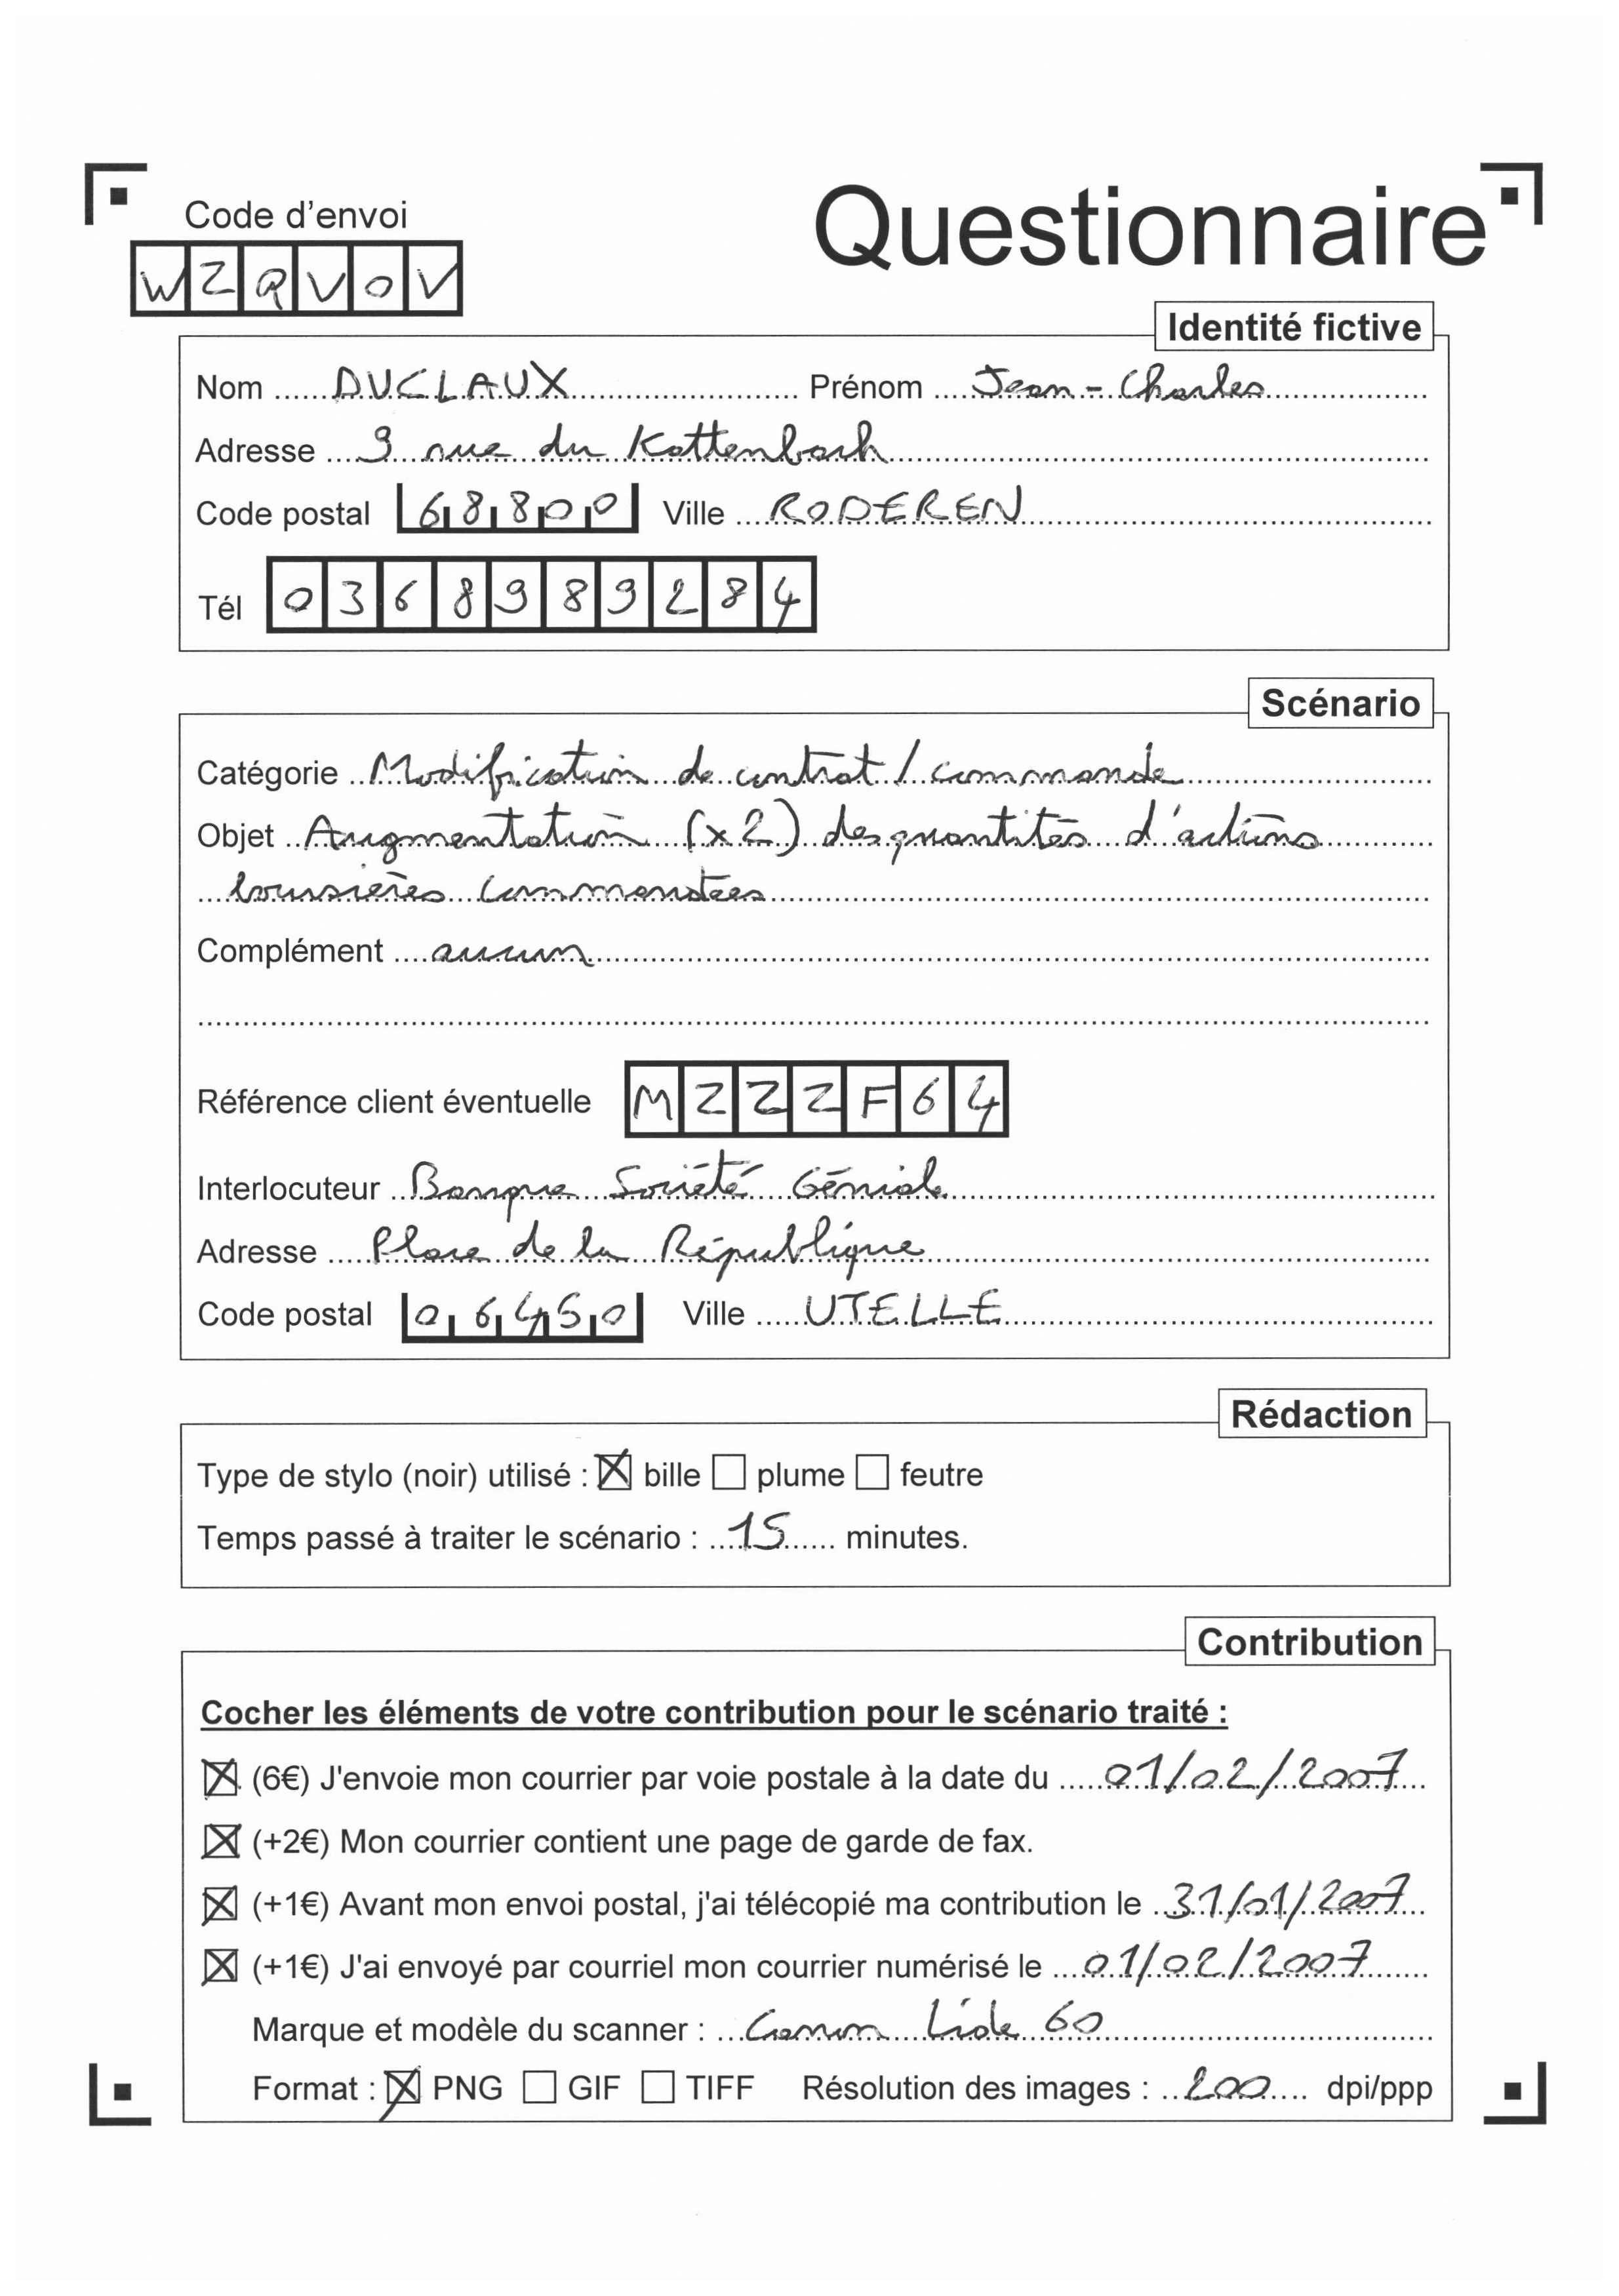 Code d'envoi
Questionnaire
WZRVOV
Identité fictive
Nom DUCLAUX Prénom Jean-Charles
Adresse 9 rue du Kattenbach
Code postal 68800 Ville RODEREN
Tél 0368989284
Scénario
Catégorie Modification de contrat / commande
Objet Augmentation (x2) des quantités d'actions
boursières commandées
Complément aucun
Référence client éventuelle MZZZF64
Interlocuteur Banque Société Géniale
Adresse Place de la République
Code postal 06450 Ville UTELLE
Rédaction
Type de stylo (noir) utilisé : ☒ bille ☐ plume ☐ feutre
Temps passé à traiter le scénario : 15 minutes.
Contribution
Cocher les éléments de votre contribution pour le scénario traité :
☒ (6€) J'envoie mon courrier par voie postale à la date du 01/02/2007
☒ (+2€) Mon courrier contient une page de garde de fax.
☒ (+1€) Avant mon envoi postal, j'ai télécopié ma contribution le 31/01/2007
☒ (+1€) J'ai envoyé par courriel mon courrier numérisé le 01/02/2007
Marque et modèle du scanner : Canon Lide 60
Format : ☒ PNG ☐ GIF ☐ TIFF Résolution des images : 200 dpi/ppp